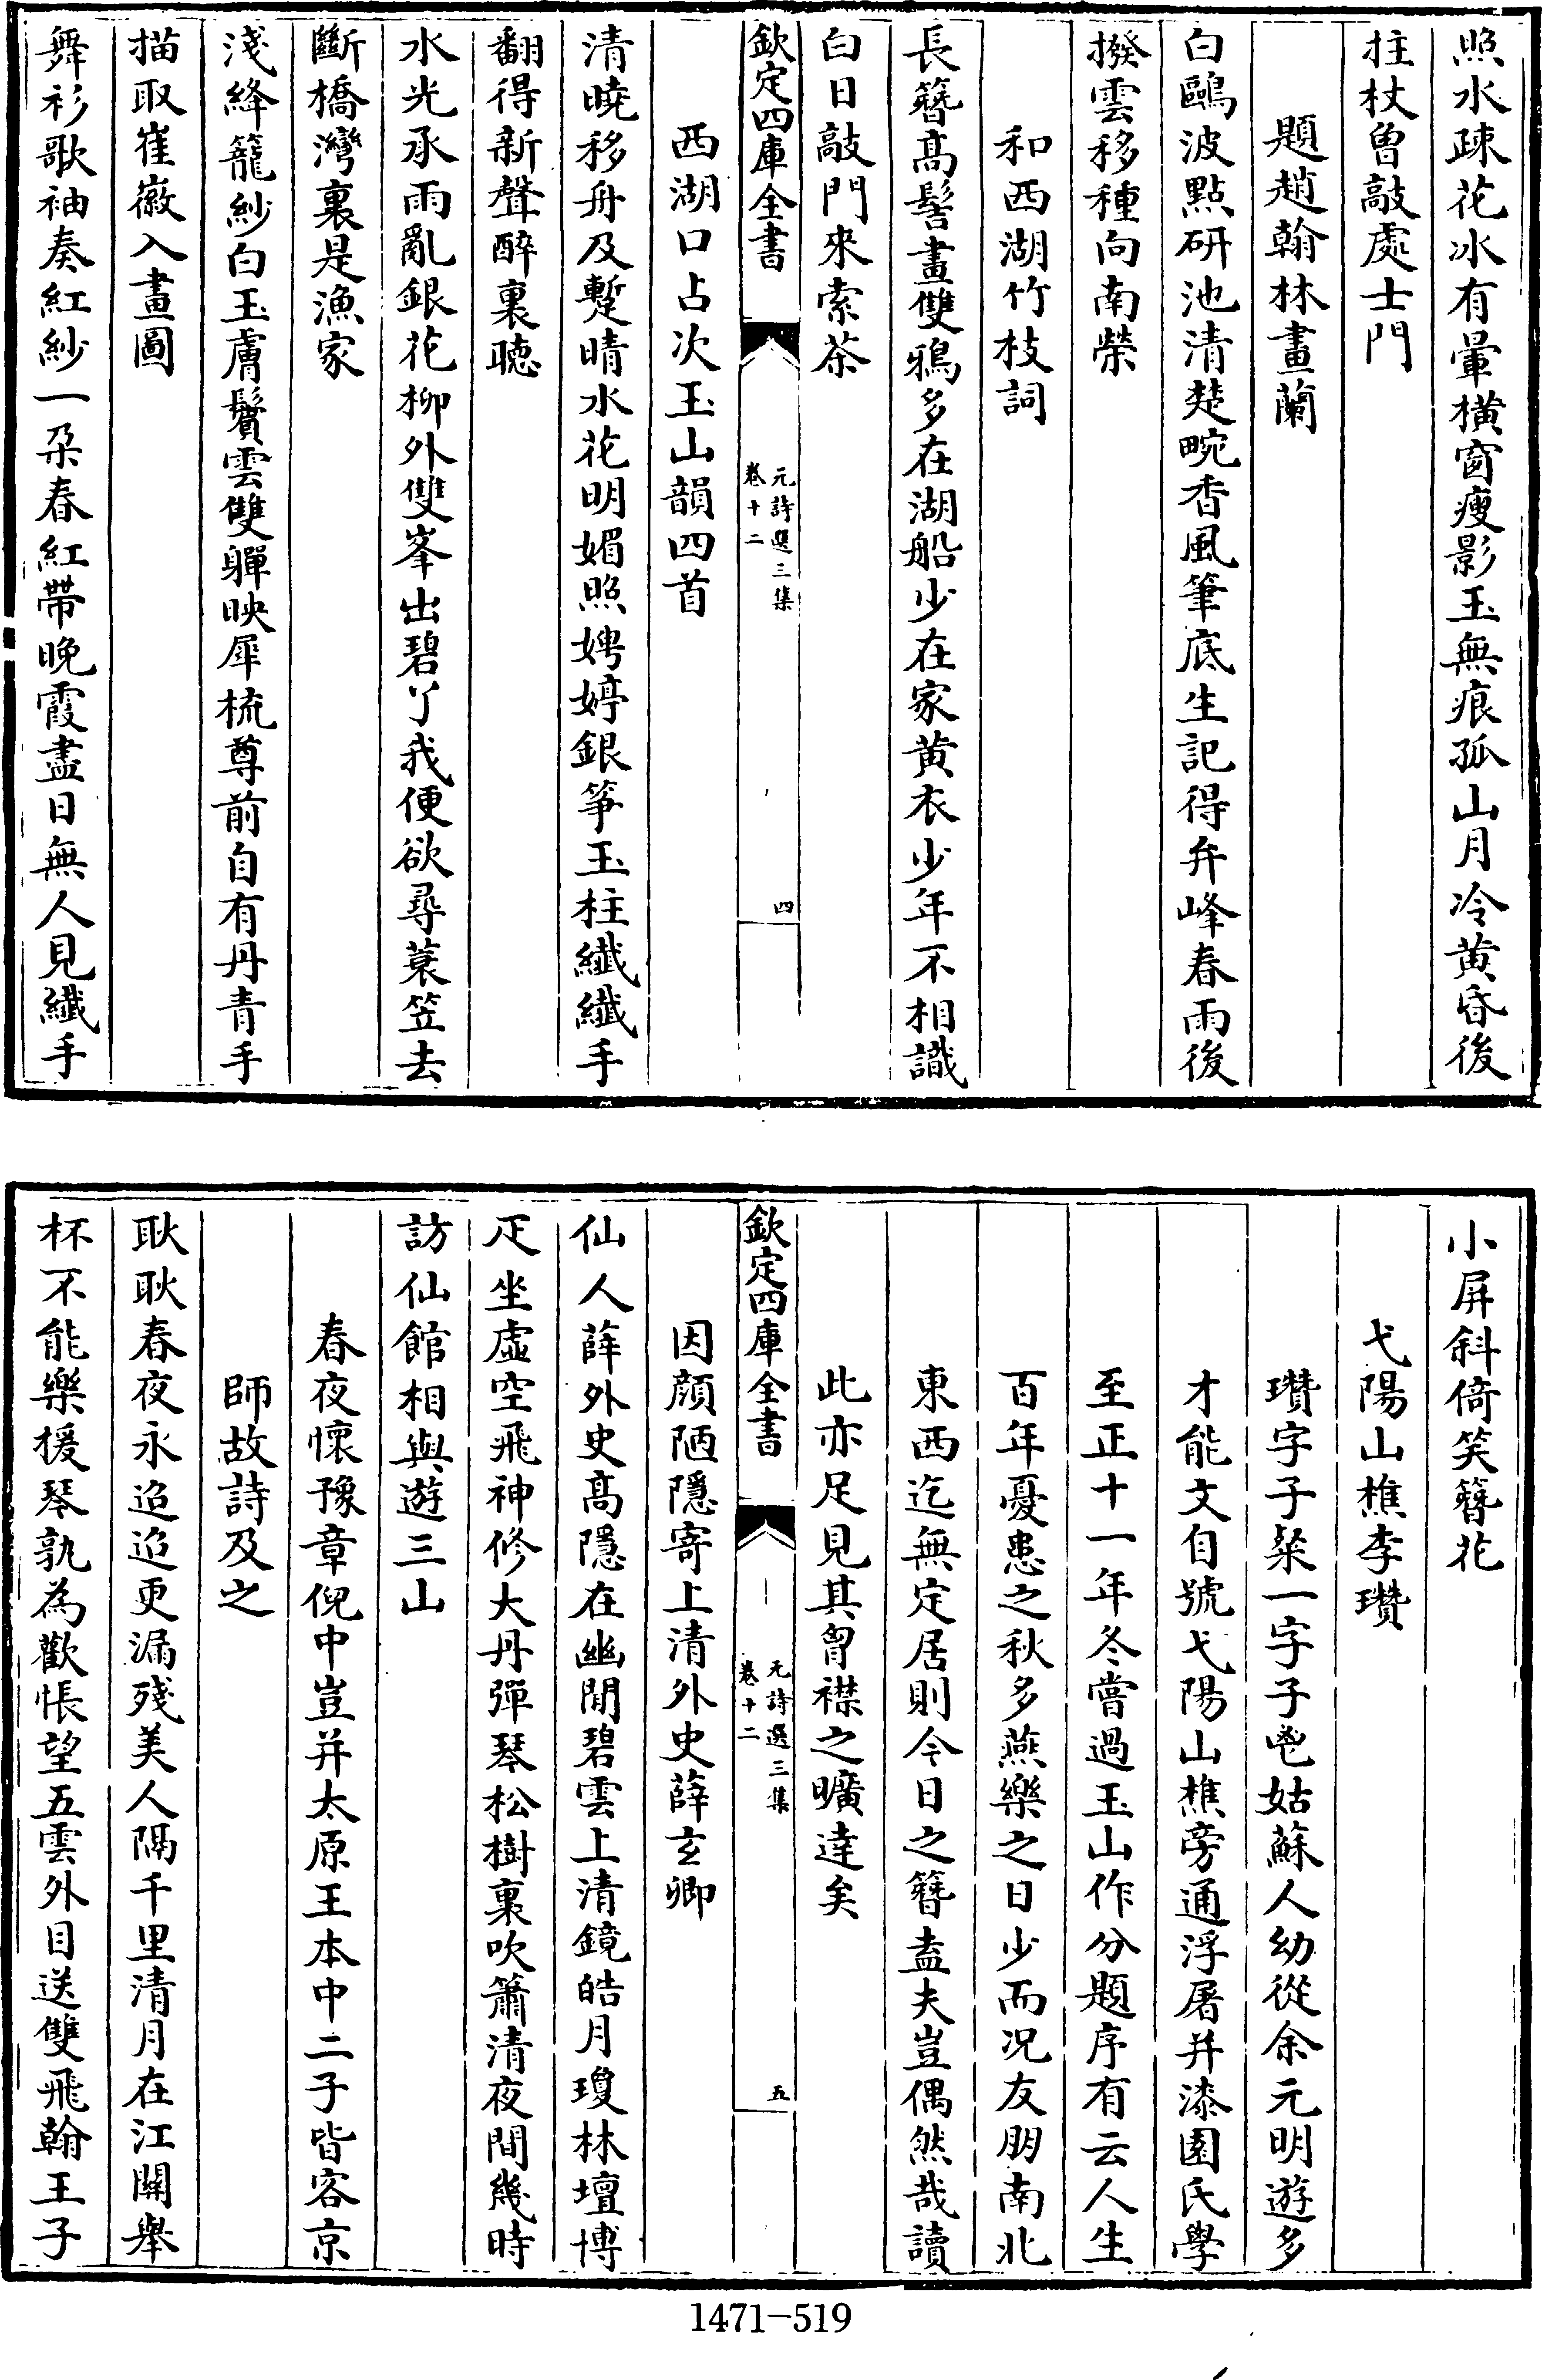 照水疎花冰有暈横窗瘦影玉無痕孤山月冷黄昏後
拄杖曽敲處士門
題趙翰林畫蘭
白鷗波點研池清楚畹香風筆底生記得弁峰春雨後
撥雲移種向南榮
和西湖竹枝詞
長簪髙髻畫雙鴉多在湖船少在家黄衣少年不相識
白日敲門來索茶
欽定四庫全書
元詩選三集
卷十二
四
西湖口占次玉山韻四首
清曉移舟及蹔晴水花明媚照娉婷銀筝玉柱纖纖手
翻得新聲醉裏聴
水光承雨亂銀花柳外雙峯出碧丫我便欲尋蓑笠去
斷橋灣裏是漁家
淺絳籠紗白玉膚鬢雲雙嚲映犀梳尊前自有丹青手
描取崔徽入畫圖
舞衫歌袖奏紅紗一朶春紅帶晚霞盡日無人見纖手
小屏斜倚笑簪花
弋陽山樵李瓚
瓚字子粲一字子鬯姑蘇人幼從余元明遊多
才能文自號弋陽山樵旁通浮屠并漆園氏學
至正十一年冬嘗過玉山作分題序有云人生
百年憂患之秋多燕樂之日少而况友朋南北
東西迄無定居則今日之簪盍夫豈偶然哉讀
此亦足見其胷襟之曠達矣
欽定四庫全書
元詩選三集
卷十二
五
因顔陋隱寄上清外史薛玄卿
仙人薛外史高隱在幽閒碧雲上清鏡皓月瓊林壇博
疋坐虚空飛神修大丹彈琴松樹裏吹簫清夜間幾時
訪仙館相與遊三山
春夜懷豫章倪中豈并太原王本中二子皆客京
師故詩及之
耿耿春夜永迢迢更漏殘美人隔千里清月在江關舉
杯不能樂援琴孰為歡悵望五雲外目送雙飛翰王子
1471-519